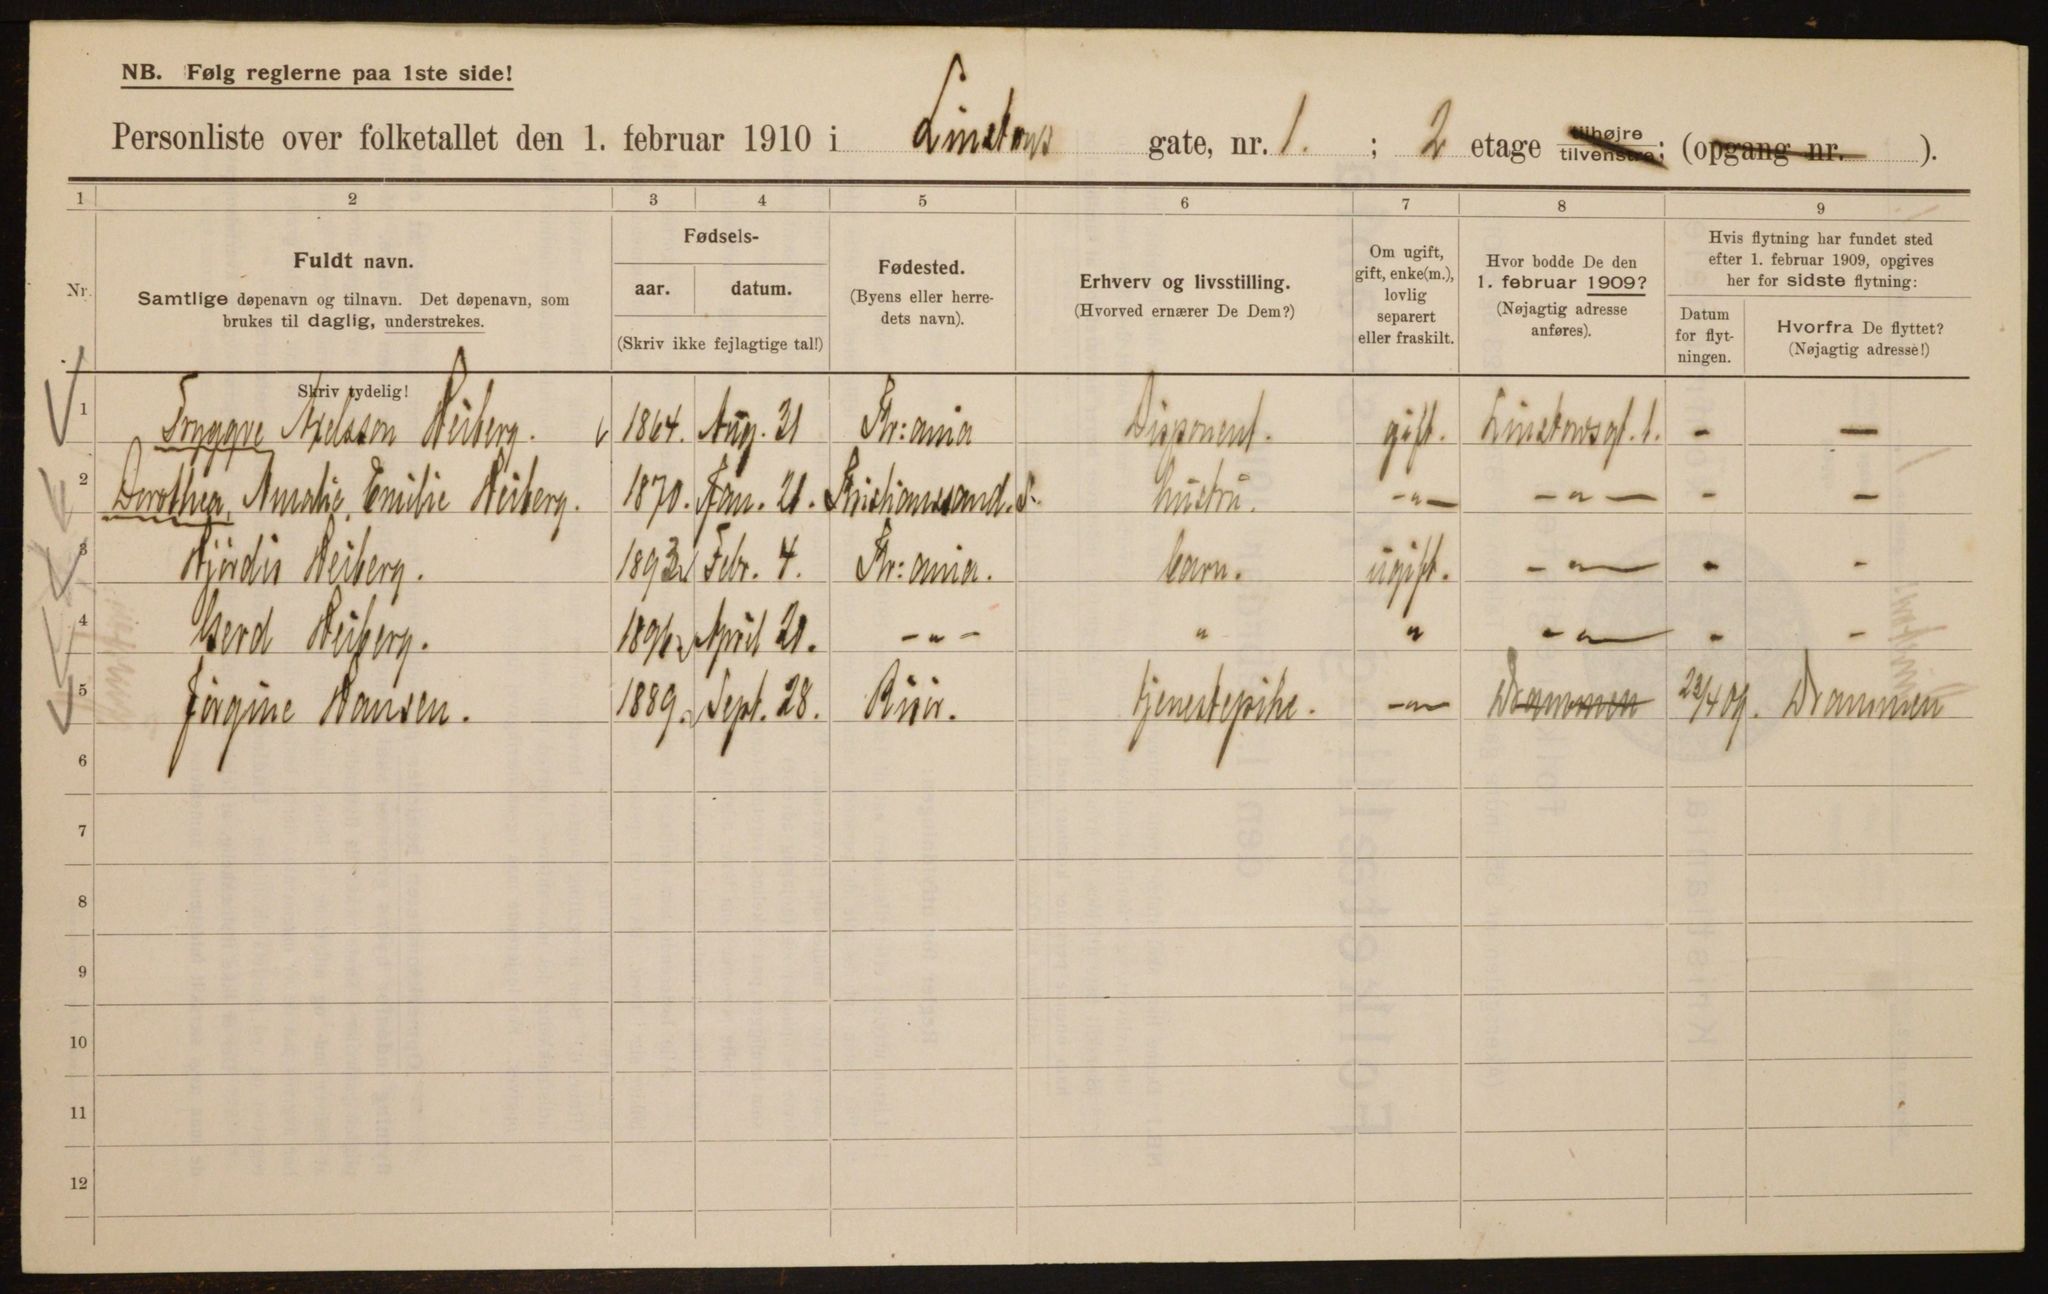 NB. Følg reglerne paa 1ste side!
Personliste over folketallet den 1. februar 1910 i Linstows gate, nr. 1. ; 2 etage tilhøjre tilvenstre; (opgang nr. ).
1 2 3 4 5 6 7 8 9
Nr.
Fuldt navn.
Samtlige døpenavn og tilnavn. Det døpenavn, som
brukes til daglig, understrekes.
Fødsels-
aar. datum.
(Skriv ikke fejlagtige tal!)
Fødested.
(Byens eller herre-
dets navn).
Erhverv og livsstilling.
(Hvorved ernærer De Dem?)
Om ugift,
gift, enke(m.),
lovlig
separert
eller fraskilt.
Hvor bodde De den
1. februar 1909?
(Nøjagtig adresse
anføres).
Hvis flytning har fundet sted
efter 1. februar 1909, opgives
her for sidste flytning:
Datum
for flyt-
ningen.
Hvorfra De flyttet?
(Nøjagtig adresse!)
Skriv tydelig!
1 Tryggve Axelsson Heiberg. 1864. Aug. 31 Kr:ania Disponent. gift. Linstowsgt. 1. - -
2 Dorothea, Amalie, Emilie Heiberg. 1870. Jan. 21. Kristianssand. S. hustru. -"- -"- - -
3 Hjördis Heiberg. 1893 Febr. 4. Kr:ania. barn. ugift. -"- - -
4 Gerd Heiberg. 1896 April 21. -"- " " -"- - -
5 Jörgine Hansen. 1889. Sept. 28. Risör. tjenestepike. -"- Drammen 23/4 09. Drammen
6
7
8
9
10
11
12